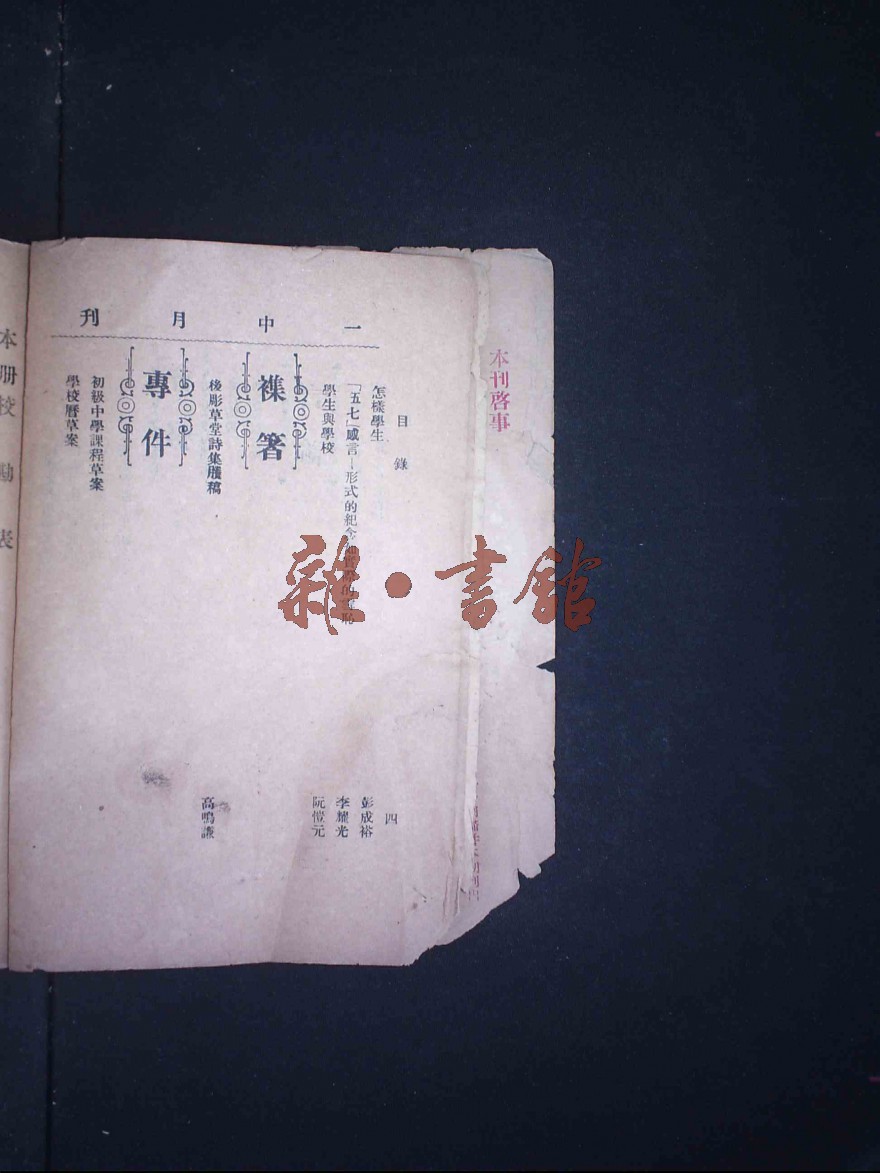 一中月刊
目錄
四
怎樣學生
彭成裕
「五七」感言—形式的紀念
李耀光
學生與學校
阮愷元
襍箸
後彫草堂詩集賸稿
高鳴謙
專件
初級中學課程草案
學校曆草案
本刊啓事
本册校勘表
雜·書館